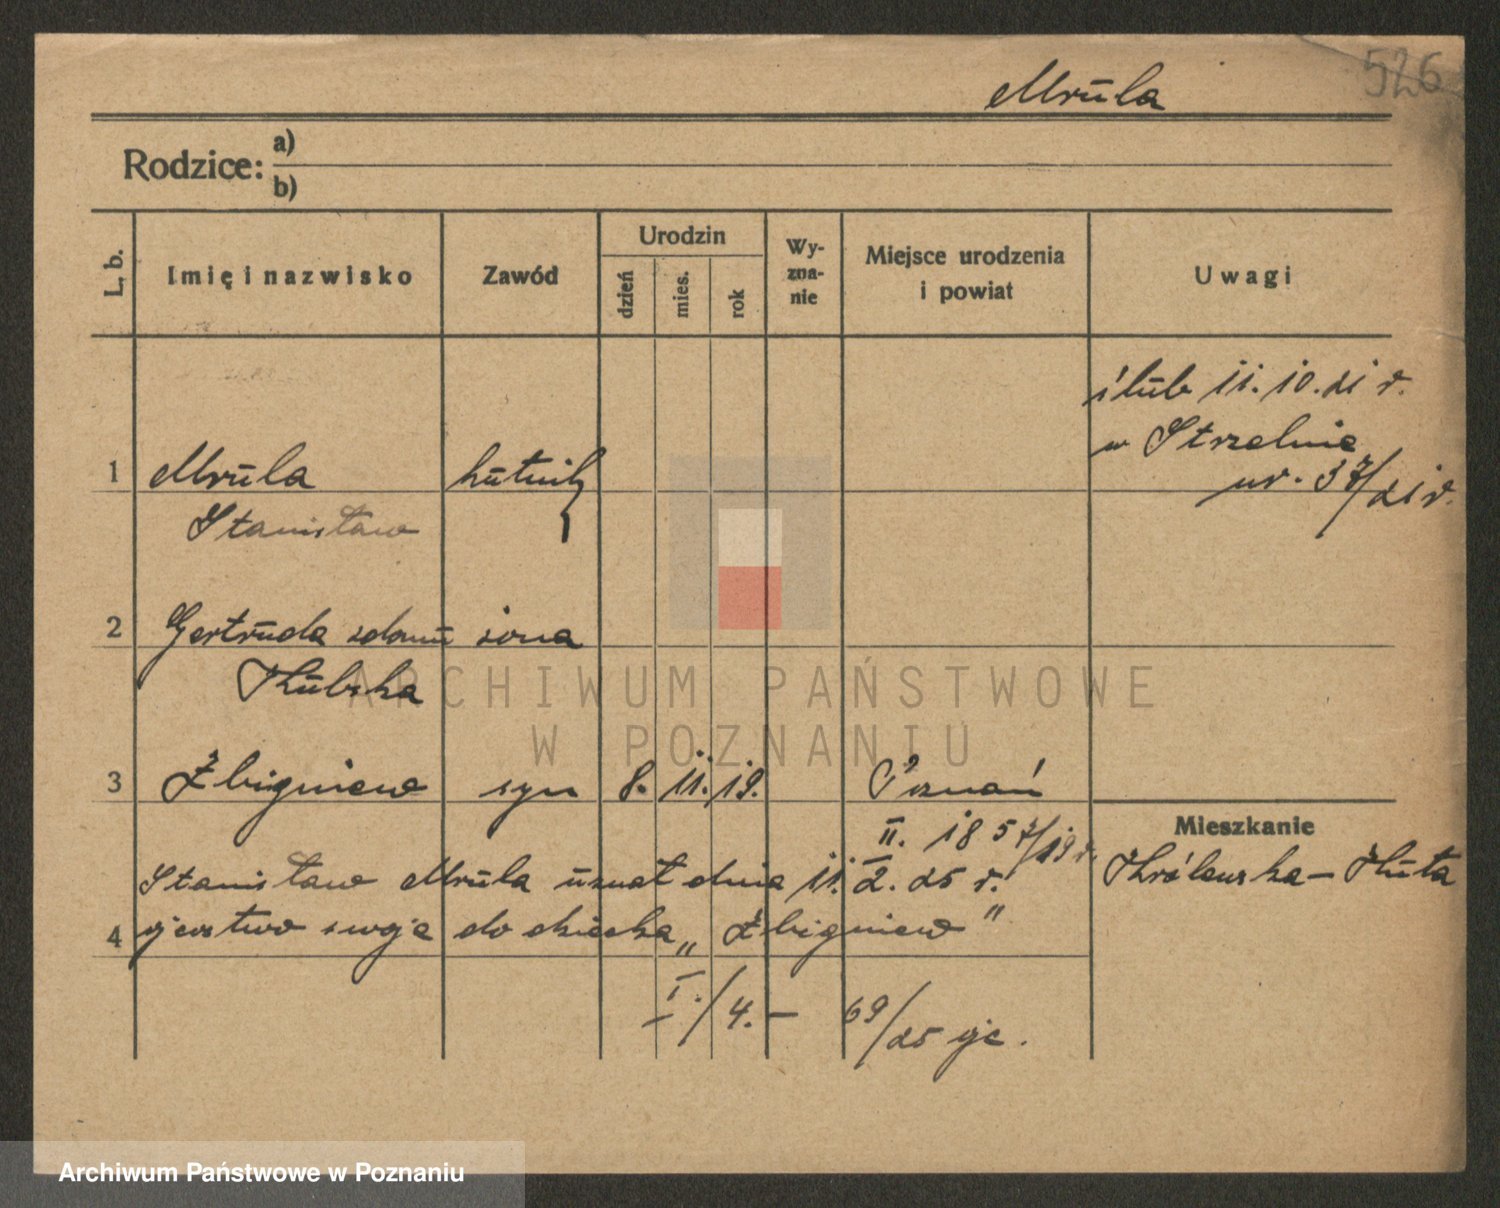 526
Mrula
Rodzice: a)
b)
L. b.
Imię i nazwisko
Zawód
Urodzin
dzień
mies.
rok
Wy-
zna-
nie
Miejsce urodzenia
i powiat
Uwagi
ślub 11. 10. 21 r.
w Strzelnie
nr. 37/21 r.
1 Mrula hutnik
Stanisław
2 Gertruda z domu żona
Kubska
3 Zbigniew syn 8. 11. 19. Poznań
II. 1857/19 r.
Mieszkanie
Królewska – Huta
Stanisław Mrula uznał dnia 11. 2. 25 r.
4 ojcostwo swoje do dziecka „Zbigniew”
I./4. – 69/25 gc.
ARCHIWUM PAŃSTWOWE
W POZNANIU
Archiwum Państwowe w Poznaniu